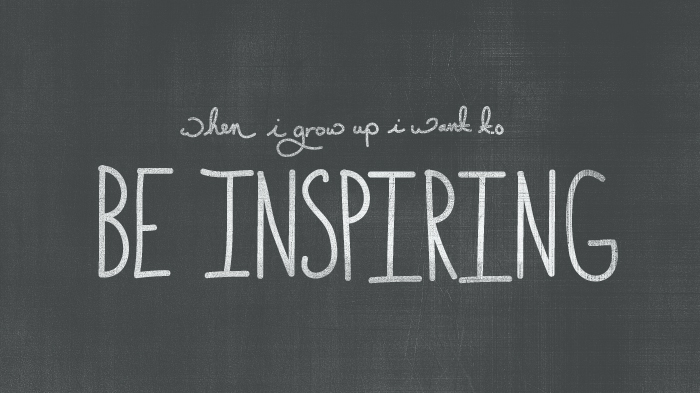 when i grow up i want to
BE INSPIRING